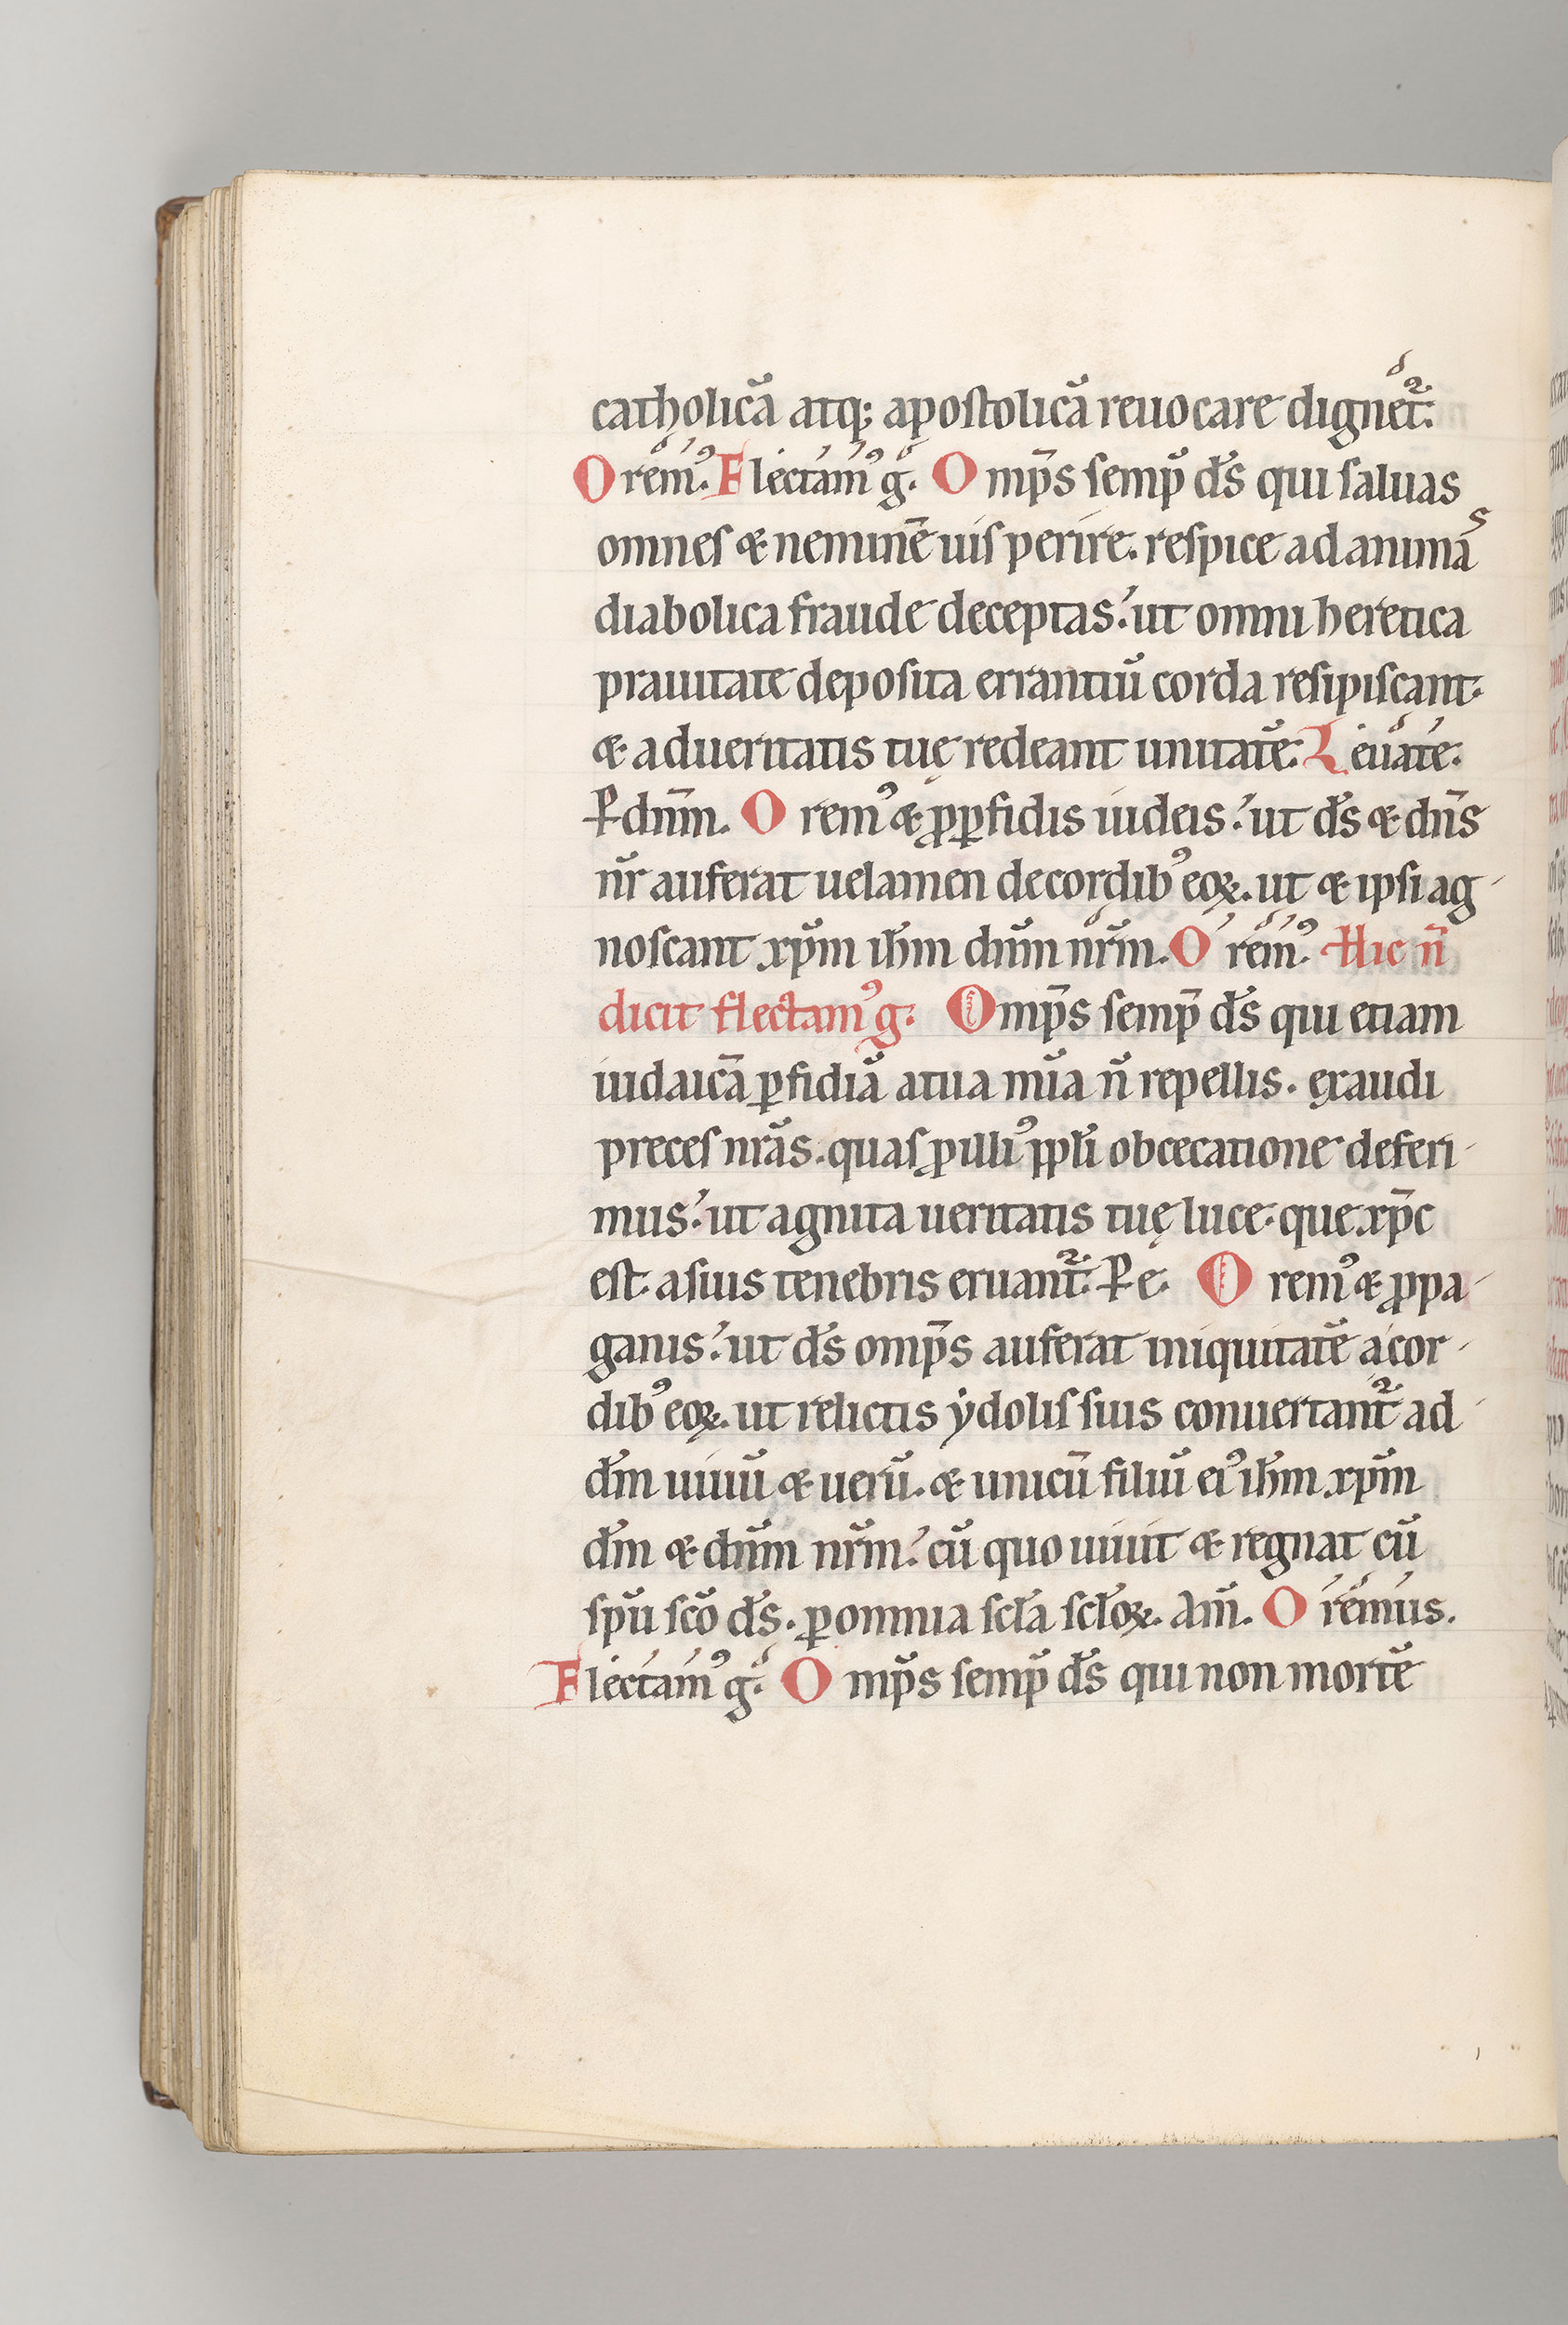 catholicā atq; apostolicā reuocare dignet᷑.
Orem᷒. Flectam᷒ g. Omp̄s semp̄ d̄s qui saluas
omnes & neminē uis perire. respice ad animās
diabolica fraude deceptas. ut omni heretica
prauitate deposita errantiū corda resipiscant.
& ad ueritatis tuę redeant unitatē. Leuate.
P dn̄m. Orem᷒ & ꝓ ꝑfidis iudeis. ut d̄s & dn̄s
nr̄ auferat uelamen de cordib᷒ eoꝝ. ut & ipsi ag-
noscant xp̄m ih̄m dn̄m nr̄m. Orem᷒. Hic n̄
dicit flectam᷒ g. Omp̄s semp̄ d̄s qui etiam
iudaicā ꝑfidiā a tua mīa n̄ repellis. exaudi
preces nr̄as. quas ꝓ illi᷒ ppl̄i obcecatione deferi-
mus. ut agnita ueritatis tuę luce. que xp̄c
est. a suis tenebris eruant᷑. P e. Orem᷒ & ꝓ pa-
ganis. ut d̄s omp̄s auferat iniquitatē a cor-
dib᷒ eoꝝ. ut relictis ẏdolis suis conuertant᷑ ad
d̄m uiuū & uerū. & unicū filiū ei᷒ ih̄m xp̄m
d̄m & dn̄m nr̄m. cū quo uiuit & regnat cū
sp̄u sc̄o d̄s. ꝑ omnia scl̄a scl̄oꝝ. Am̄. Oremus.
Flectam᷒ g. Omp̄s semp̄ d̄s qui non mortē